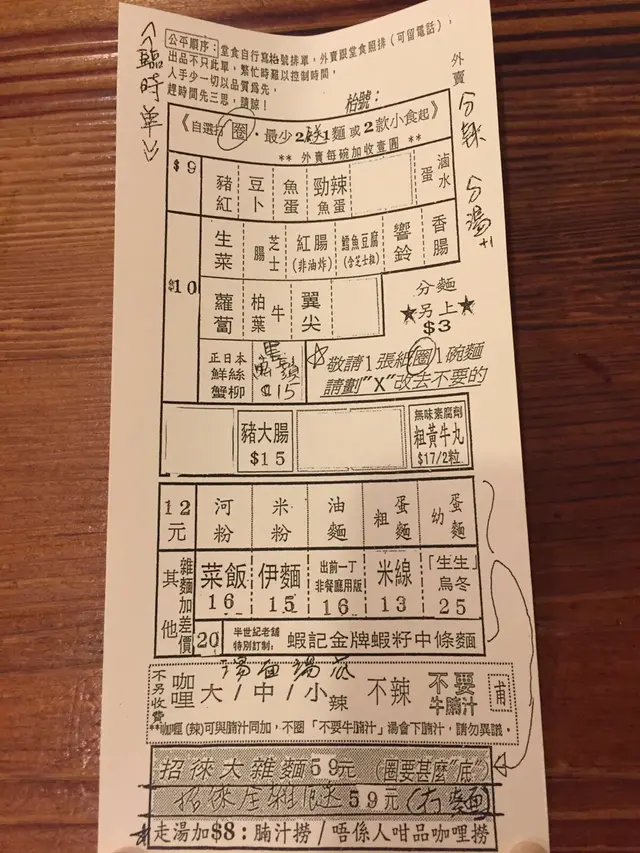 <<臨時單>>
公平順序：堂食自行寫枱號排單，外賣跟堂食照排（可留電話），
出品不只此單，繁忙時難以控制時間，
人手少一切以品質為先，
趕時間先三思，請諒！
枱號：
外賣 分辣 分湯+1
《自選打圈．最少2餸1麵或2款小食起》
** 外賣每碗加收壹圓 **
$9 豬紅 豆卜 魚蛋 勁辣魚蛋 滷水蛋
$10 生菜 芝士腸 紅腸(非油炸) 鱈魚豆腐(含芝士粒) 響鈴 香腸
蘿蔔 牛柏葉 翼尖
分麵
★另上★
$3
正日本鮮絲蟹柳 $15
☆敬請1張紙圈1碗麵
請劃"X"改去不要的
豬大腸 $15
無味素腐劑 粗黃牛丸 $17/2粒
12元 河粉 米粉 油麵 粗蛋麵 幼蛋麵
其他 雜麵加差價 菜飯 16 伊麵 15 出前一丁 非餐廳用版 16 米線 13 「生生」烏冬 25
20 半世紀老舖 特別訂制： 蝦記金牌蝦籽中條麵
不另收費 咖哩 大/中/小辣 不辣 不要牛腩汁 甫
**咖喱(辣)可與腩汁同加，不圈「不要牛腩汁」湯會下腩汁，請勿異議。
招徠大雜麵59元（圈要甚麼"底"）
59元
*走湯加$8：腩汁撈/唔係人咁品咖哩撈